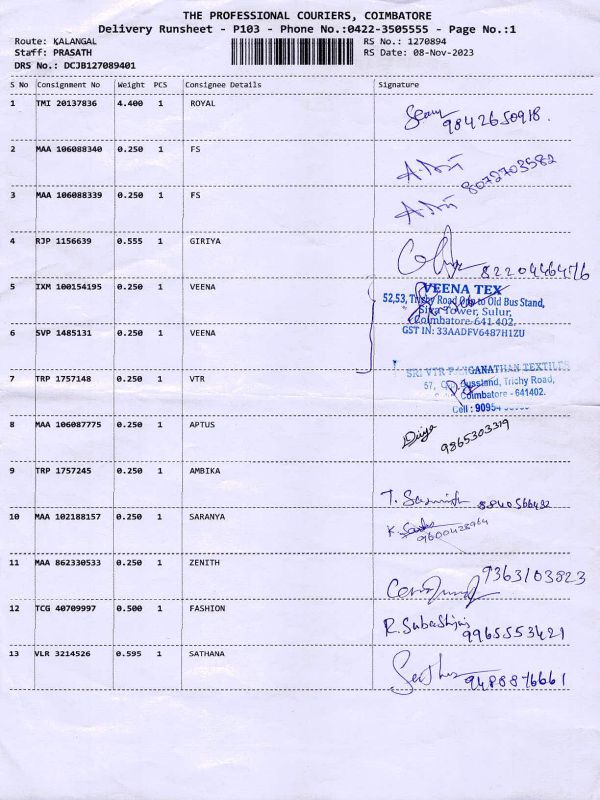 THE PROFESSIONAL COURIERS, COIMBATORE
Delivery Runsheet - P103 - Phone No.:0422-3505555 - Page No.:1
Route: KALANGAL
RS No.: 1270894
Staff: PRASATH
RS Date: 08-Nov-2023
DRS No.: DCJB127089401
S No Consignment No Weight PCS Consignee Details Signature
1 TMI 20137836 4.400 1 ROYAL
9842650918.
2 MAA 106088340 0.250 1 FS
8072703582
3 MAA 106088339 0.250 1 FS
4 RJP 1156639 0.555 1 GIRIYA
8220446476
5 IXM 100154195 0.250 1 VEENA
VEENA TEX
52,53, Trichy Road Opp to Old Bus Stand,
Tower, Sulur,
Coimbatore-641 402.
GST IN: 33AADFV6487H1ZU
6 SVP 1485131 0.250 1 VEENA
7 TRP 1757148 0.250 1 VTR
SRI VTR RANGANATHAN TEXTILES
57, Trichy Road,
Coimbatore - 641402.
Cell : 90954
8 MAA 106087775 0.250 1 APTUS
Divya
9865303319
9 TRP 1757245 0.250 1 AMBIKA
8840566492
10 MAA 102188157 0.250 1 SARANYA
9600428964
11 MAA 862330533 0.250 1 ZENITH
9363103823
12 TCG 40709997 0.500 1 FASHION
R. Subashini
9965553421
13 VLR 3214526 0.595 1 SATHANA
9488876661